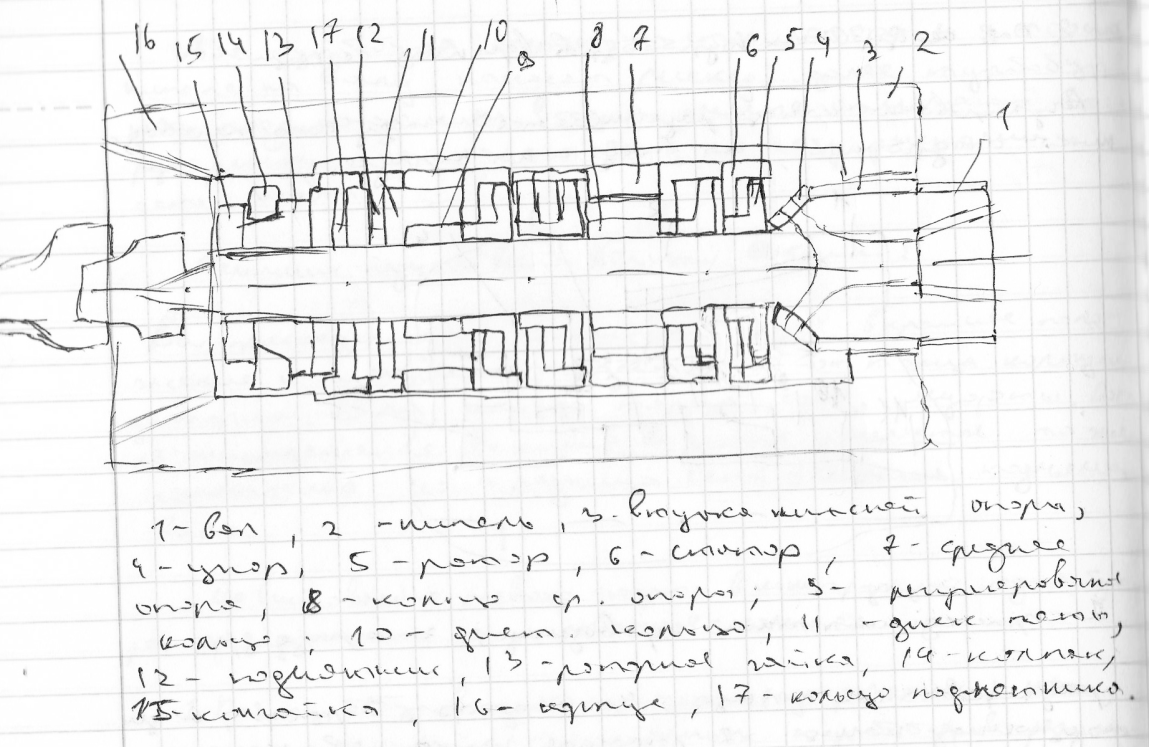 16 15 14 13 17 12 11 10 9 8 7 6 5 4 3 2 1
1 - вал, 2 - нипель, 3 - втулка нижней опоры,
4 - упор, 5 - ротор, 6 - статор, 7 - средняя
опора, 8 - кольцо ср. опоры; 9 - регулировочное
кольцо; 10 - дист. кольцо, 11 - диск пяты,
12 - подпятник, 13 - роторная гайка, 14 - колпак,
15 - контргайка, 16 - корпус, 17 - кольцо подпятника.